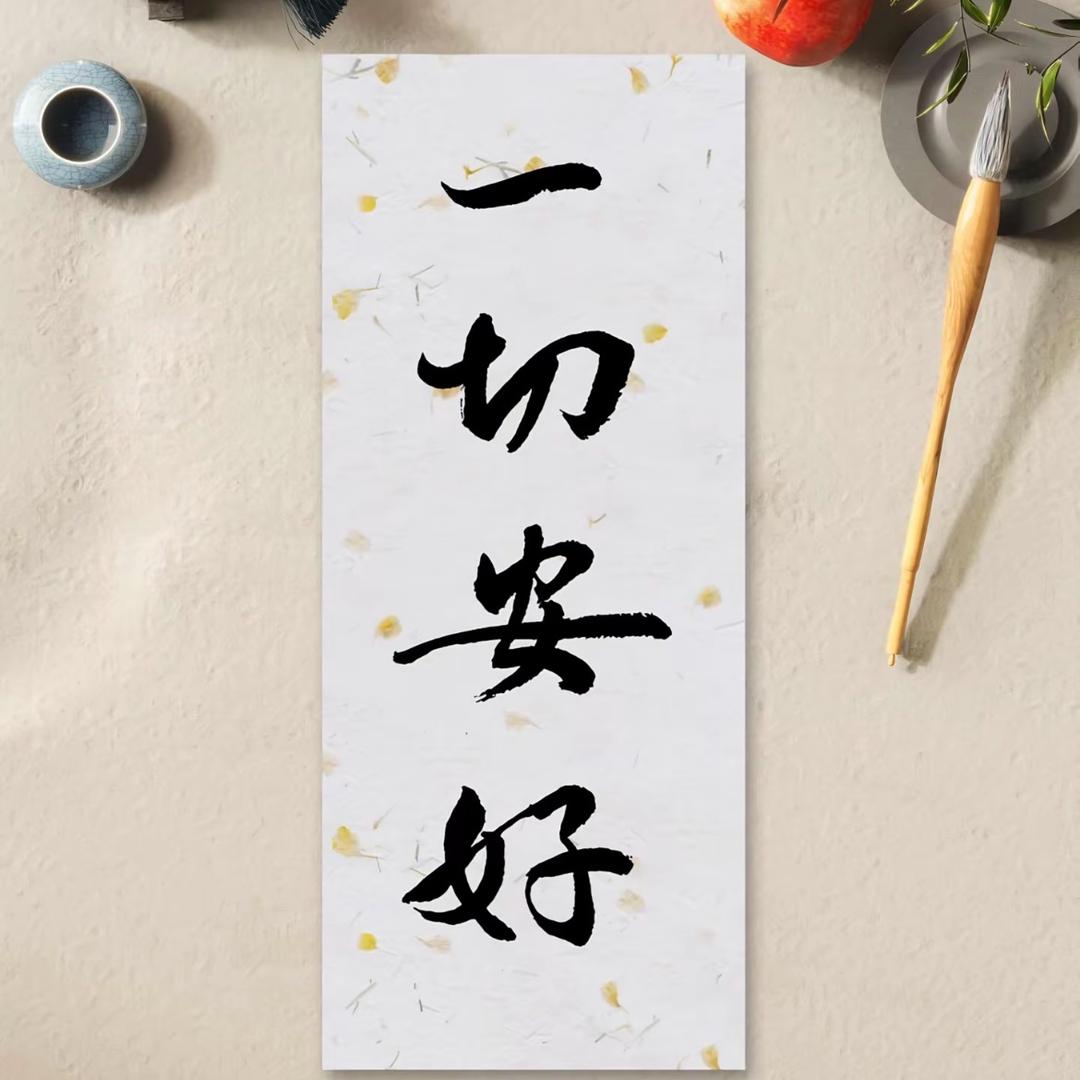 一切安好